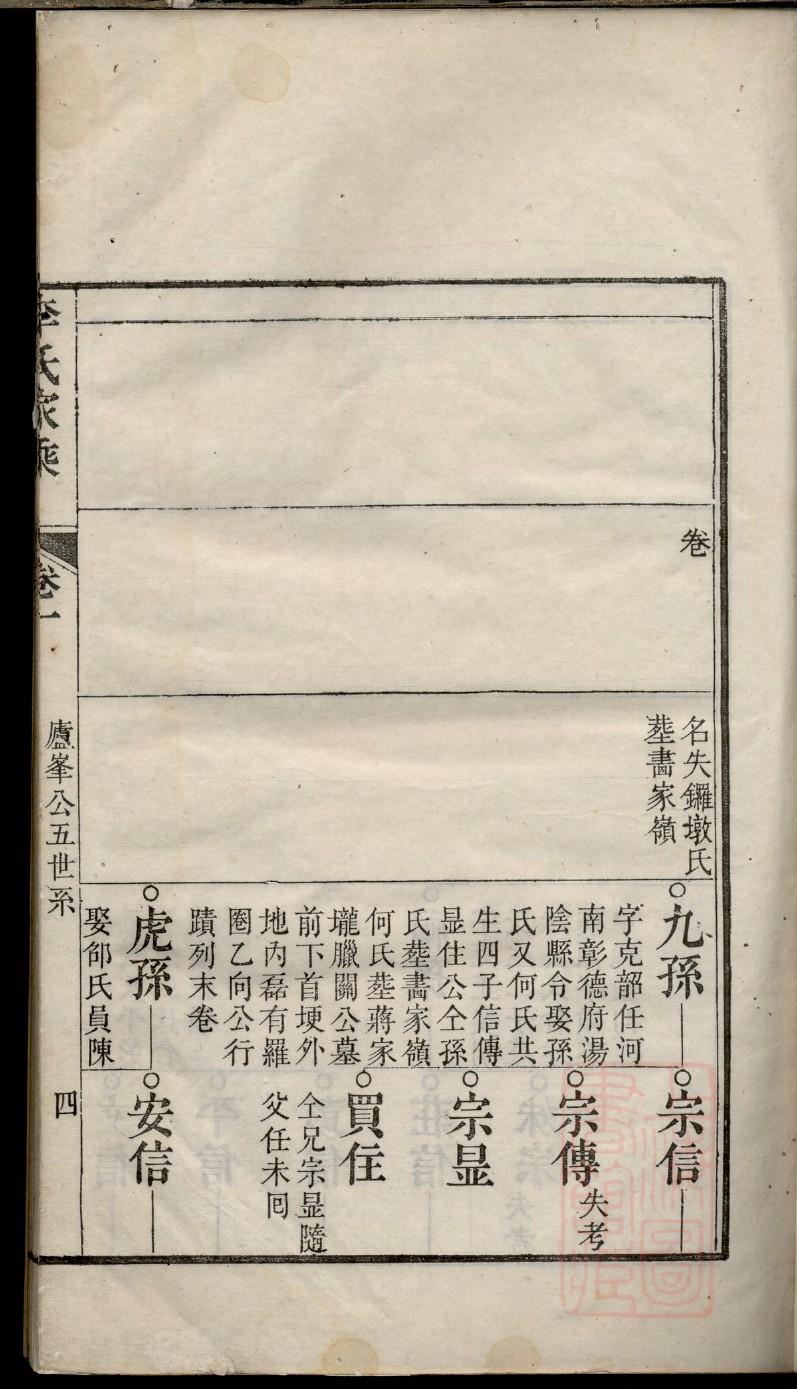 卷
名失鑼墩氏
塟畵家嶺
九孫
字克韶任河
南彰德府湯
陰縣令娶孫
氏又何氏共
生四子信傳
显住公仝孫
氏塟畵家嶺
何氏塟蔣家
壠臘闗公墓
前下首埂外
地內磊有羅
圈乙向公行
蹟列末卷
虎孫
娶邰氏員陳
宗信
宗傳
失考
宗显
買住
仝兄宗显隨
父任未囘
安信
李氏家乘
卷一
廬峯公五世系
四